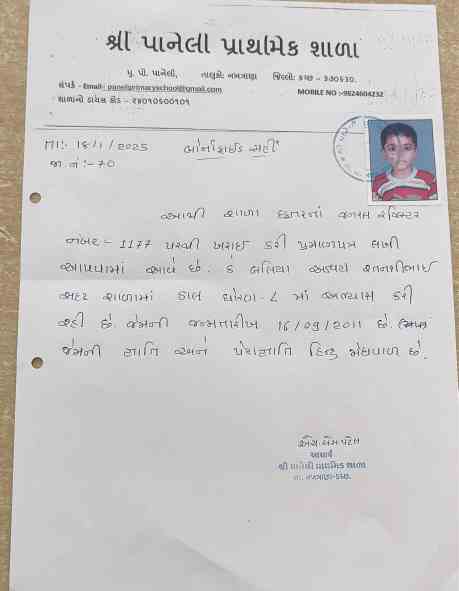 શ્રી પાનેલી પ્રાથમિક શાળા
મુ. પી. પાનેલી, તાલુકો: નખત્રાણા જિલ્લો: કચ્છ - ૩૭૦૬૩૦.
સંપર્ક - Email: paneliprimaryschool@gmail.com MOBILE NO :-9824604232
શાળાનો ડાયસ કોડ - ૨૪૦૧૦૫૦૦૧૦૧
તા:- 18/1/2025 બોનાફાઇડ સર્ટી
જા.નં:- 70
આથી શાળા દફતરનાં જનરલ રજિસ્ટર
નંબર - 1177 પરથી ખરાઇ કરી પ્રમાણપત્ર લખી
આપવામાં આવે છે. કે બલિયા અક્ષય રતનશીભાઇ
અત્રે શાળામાં હાલ ધોરણ - ૮ માં અભ્યાસ કરી
રહી છે. જેમની જન્મતારીખ 16/09/2011 છે.
જેમની જ્ઞાતિ અને પેટાજ્ઞાતિ હિન્દુ મેઘવાળ છે.
એચ એમ પટેલ
આચાર્ય
શ્રી પાનેલી પ્રાથમિક શાળા
તા. નખત્રાણા-કચ્છ.